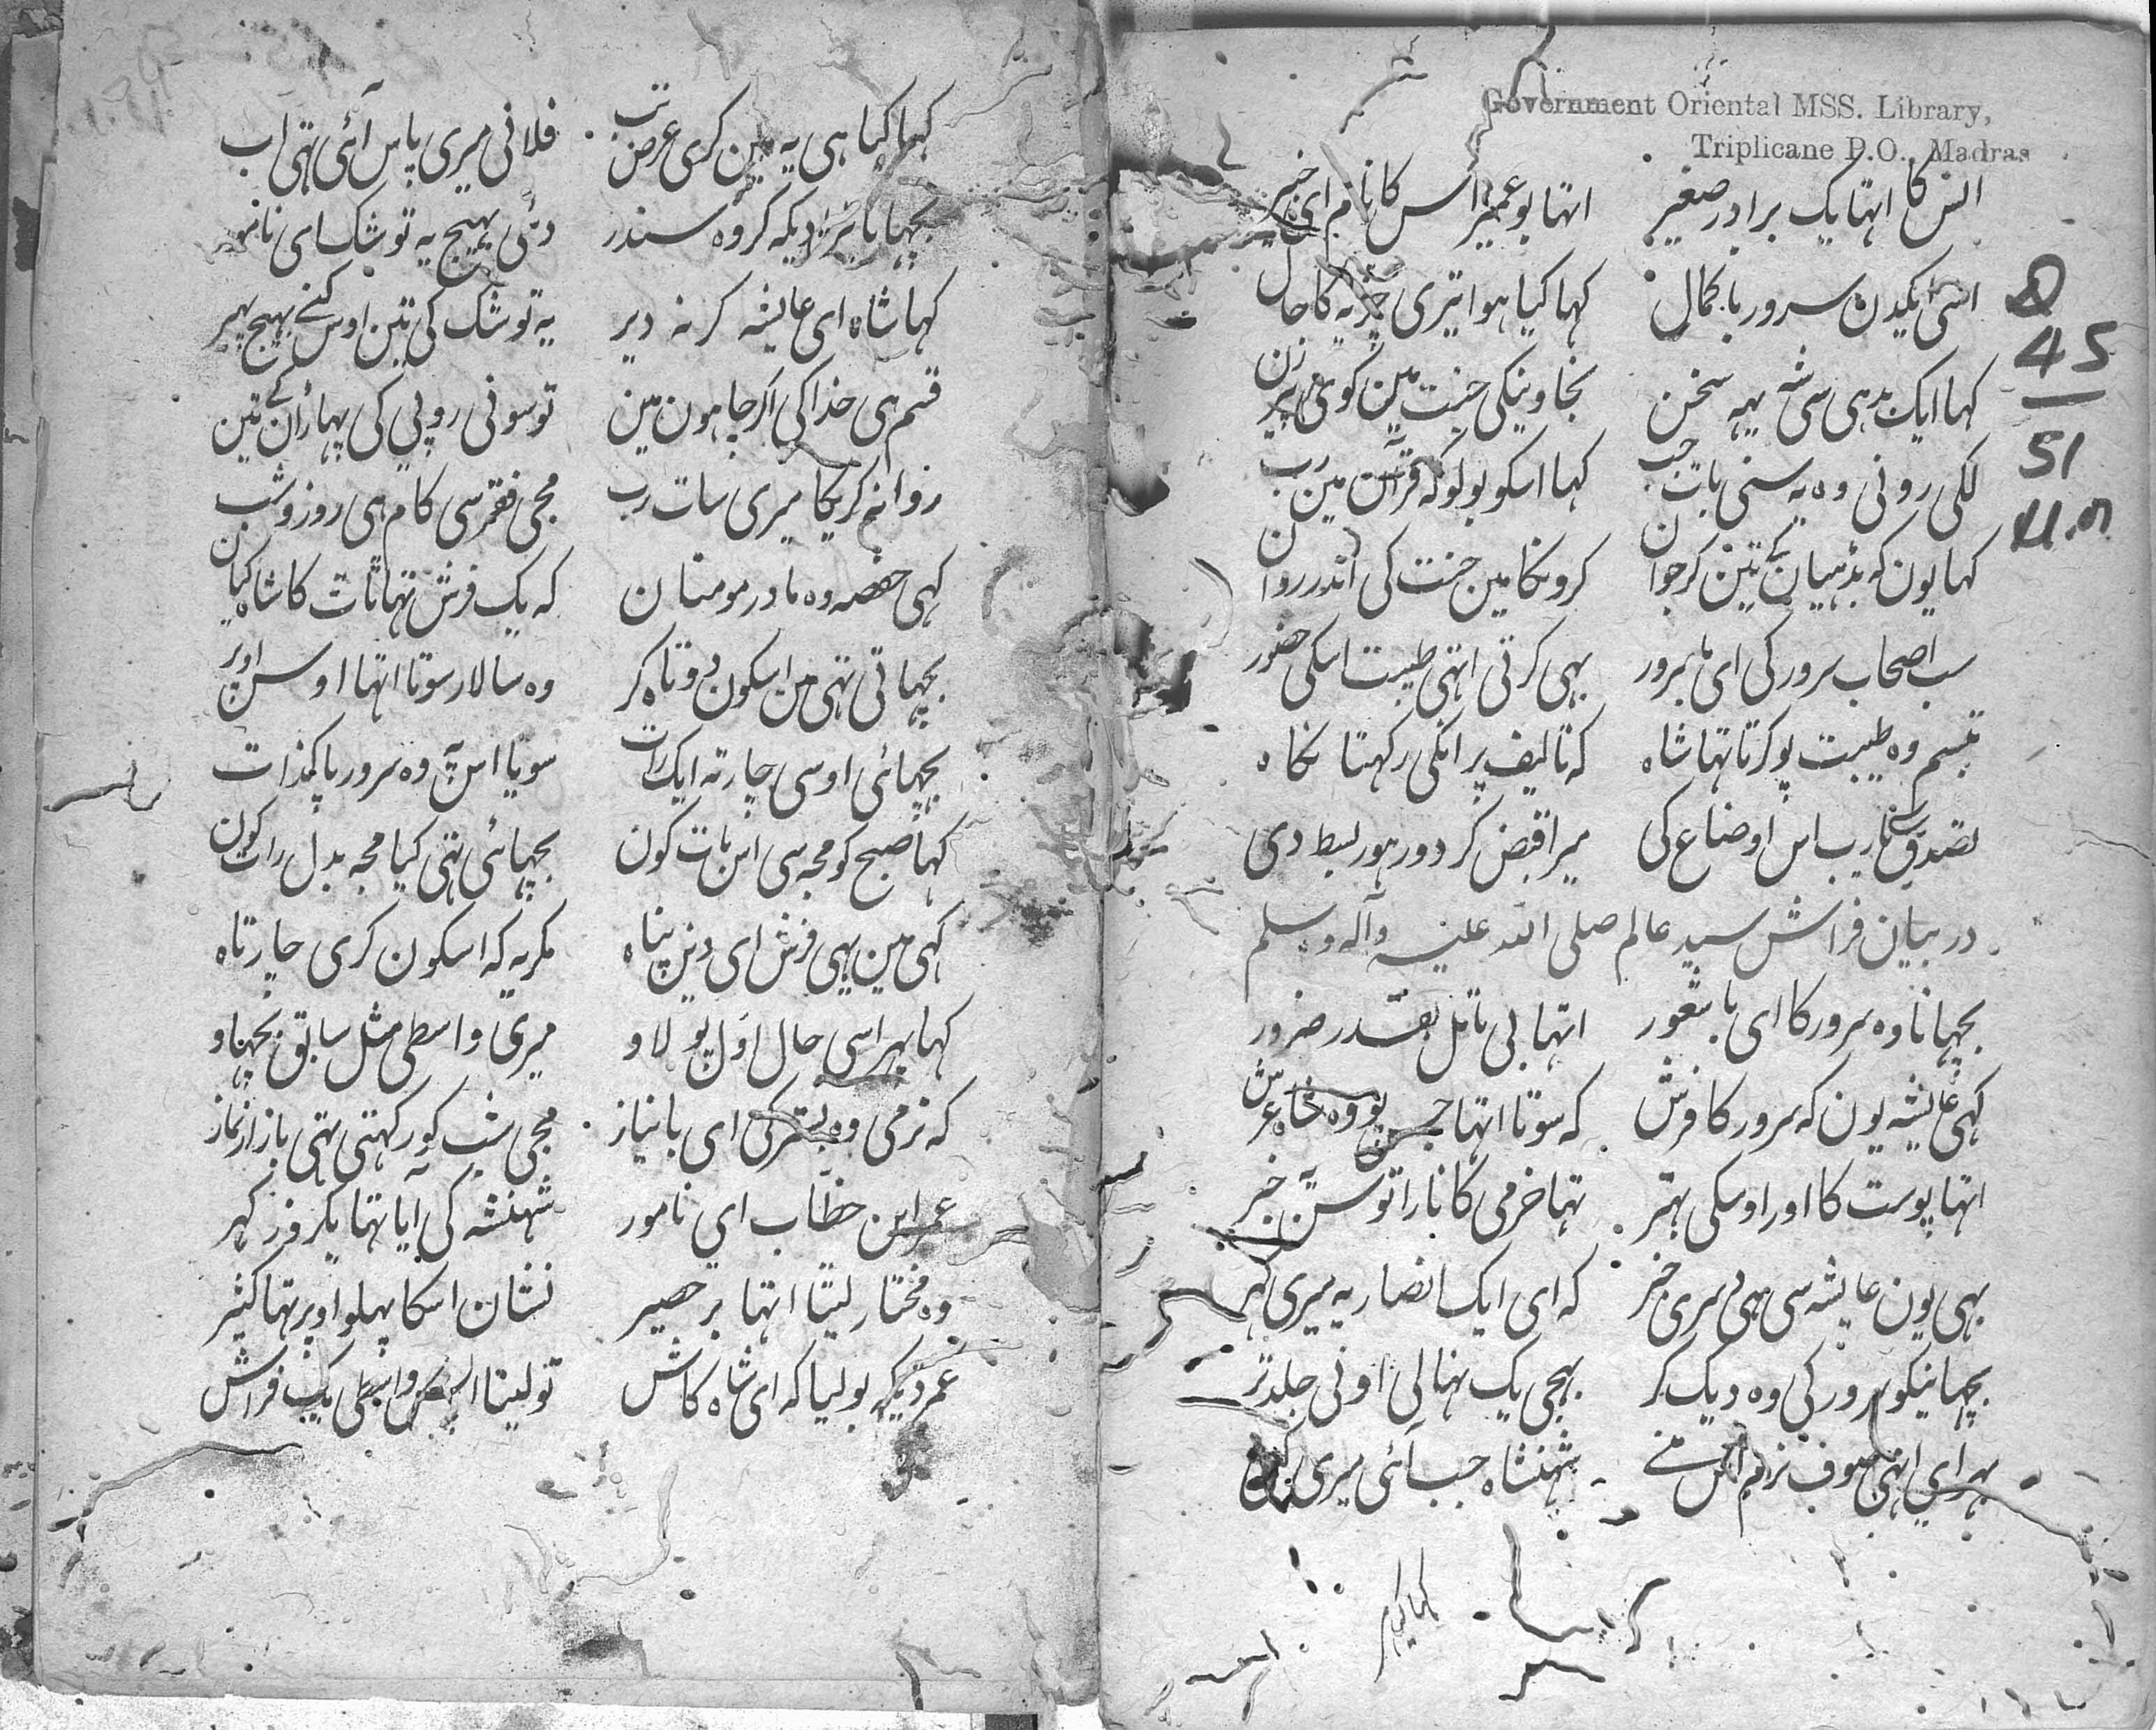 Government Oriental MSS. Library,
Triplicane P.O., Madras
انس کا اتہا یک برادر صغیر اتہا بو عمیر اس کا نام ای خبیر
اسی یکدن سرور با کمال کہا کیا ہوا تیری چڑیہ کا حال
کہا ایک بڈہی سی شہ یہہ سخن نجاوینگی جنت مین کوی پیر زن
لگی رونی وہ یہ سنی بات جب کہا اسکو بولو کہ قرآن مین رب
کہا یون کہ بڈہیان کے تین کر جوان کرونگا مین جنت کی اندر روان
سب اصحاب سرور کی ای ماہرور بہی کرتی اتہی طیبت اسکی حضور
تبسم وہ طیبت پو کرتا تہا شاہ کہ تالیف پر انکی رکہتا نگاہ
تصدق سے یارب اس اوضاع کی میرا قبض کر دور ہور بسط دی
در بیان فراش سید عالم صلی اللہ علیہ وآلہ وسلم
بچہانا وہ سرور کا ای با شعور اتہا بی تامل بقدر ضرور
کہی عایشہ یون کہ سرور کا فرش کہ سوتا اتہا جس پو وہ شاہ عرش
اتہا پوست کا اور اوسکی بہتر تہا خرمی کا نارا تو سن خبر
بہی یون عایشہ سی ہی دسری خبر کہ ای ایک انصاریہ میری گہر
بچہانیکو سرور کی وہ دیک کر بہجی یک نہالی اونی جلد تر
بہرای اتہی صوف نرم اس منے شہنشاہ جب آئی میری کنے
کہا کیا ہی
Q
45
51
U.M
کہا کیا ہی یہ مین کری عرض تب فلانی میری پاس آئی تہی اب
بچہانا ترا دیکہ کر وہ سندر دئی بہیج یہ توشک ای نامور
کہا شاہ ای عایشہ کر نہ دیر یہ توشک کی تین اوس کنے بہیج پہیر
قسم ہی خدا کی اگر چاہون مین تو سونی روپی کی پہاڑان کے تین
روانہ کریگا میری سات رب مجی فقر سی کام ہی روز و شب
کہی حفصہ وہ مادر مومنان کہ یک فرش تہا ٹاٹ کا شاہ کیان
بچہاتی تہی مین اسکون دو تاہ کر وہ سالار سوتا اتہا اوس اوپر
بچہائی اوسی چار تہ ایک رات سویا اس پہ وہ سرور پاکذات
کہا صبح کو مجہ سی اس بات کون بچہائی تہی کیا مجہ بدل رات کون
کہی مین یہی فرش ای دین پناہ مگر یہ کہ اسکون کری چار تاہ
کہا پہر اسی حال اول پو لاو میری واسطی مثل سابق بچہاو
کہ نرمی وہ بستر کی ای با نیاز مجی شب کو رکہتی تہی باز از نماز
عمر ابن خطاب ای نامور شہنشہ کی آیا تہا یکروز گہر
وہ مختار لیتا اتہا بر حصیر نشان اسکا پہلو اوپر تہا کثیر
عمر دیکہ بولیا کہ ای شاہ کاش تو لیتا اپس واسطی یک فراش